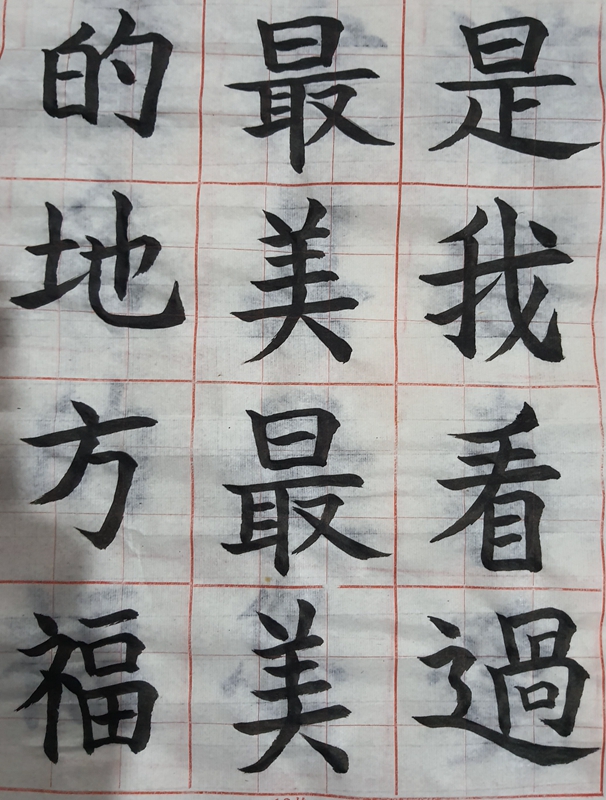 是我看過
最美最美
的地方福